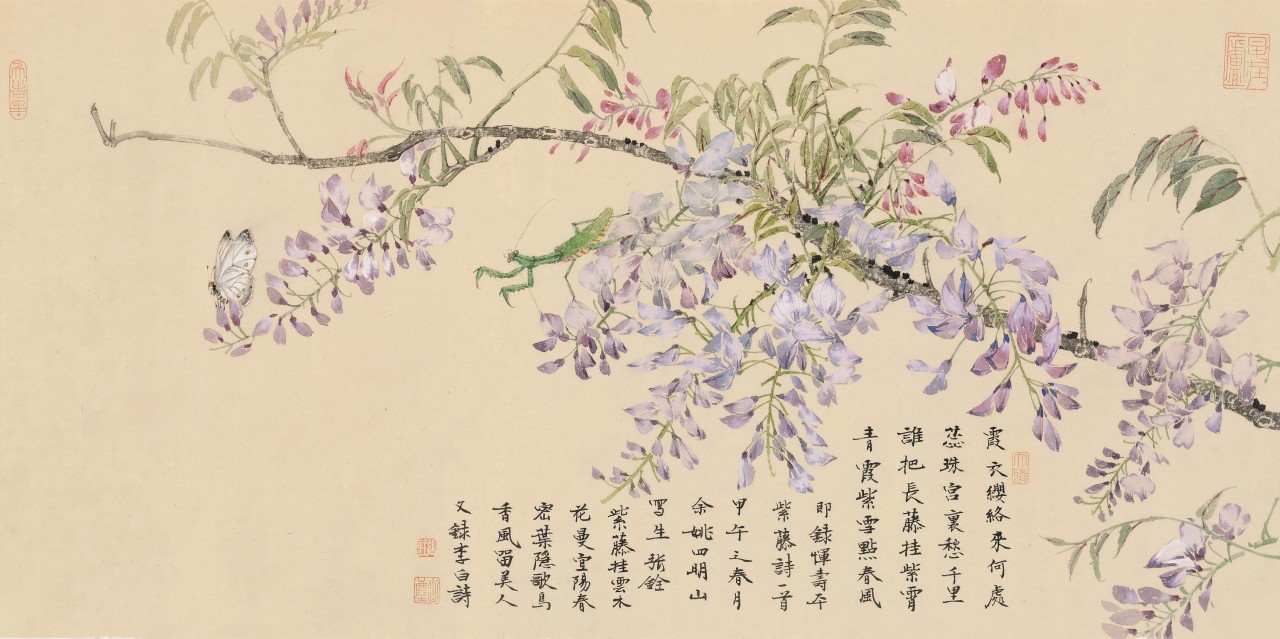 霞衣纓絡來何處
蕊珠宮裏愁千里
誰把長藤挂紫霄
青霞紫雪點春風
即録惲壽平
紫藤詩一首
甲午之春月
余姚四明山
写生 張銓
紫藤挂雲木
花曼宜陽春
密葉隐歌鳥
香風留美人
又録李白詩